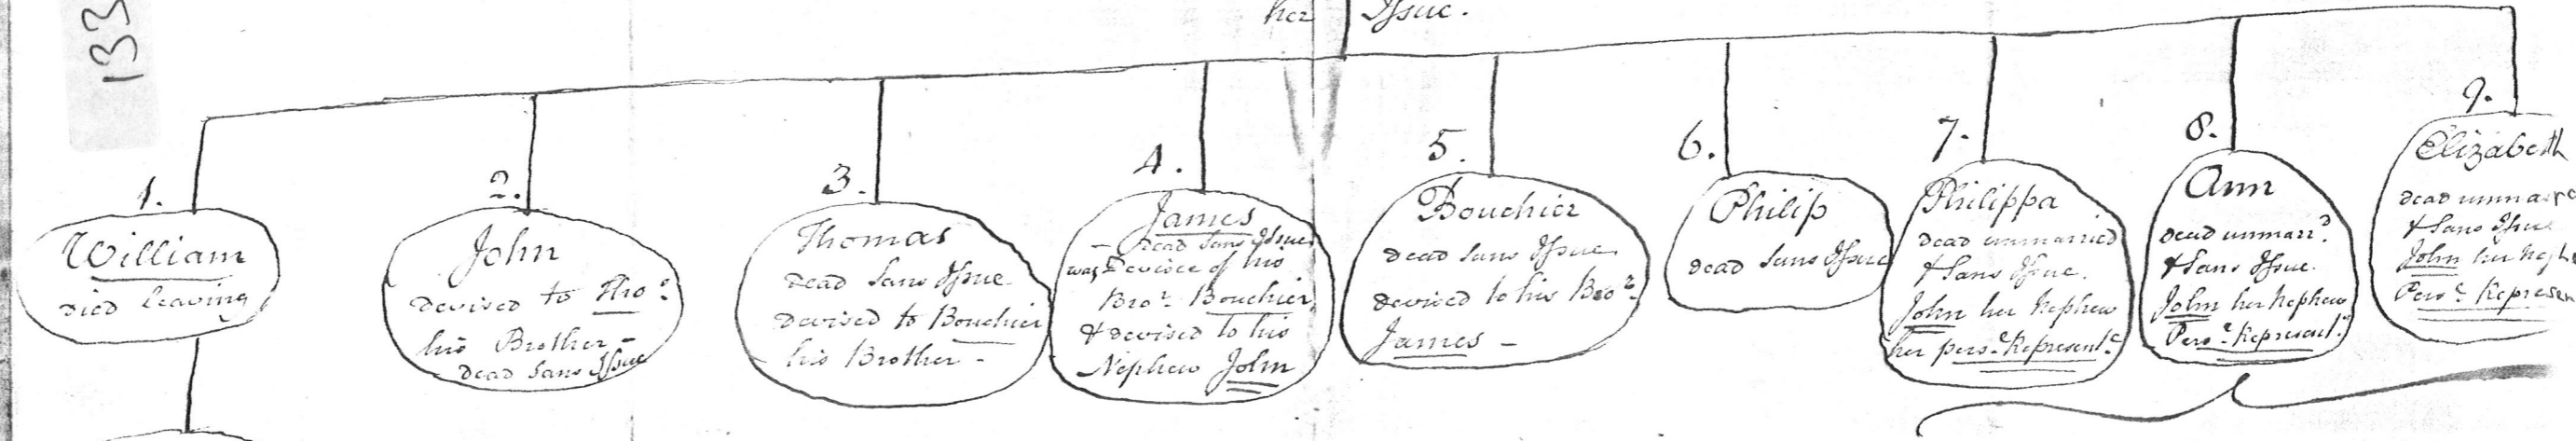 133
her Issue.
1.
William
died leaving
2.
John
devised to Tho.s
his Brother -
dead Sans Issue
3.
Thomas
dead Sans Issue
devised to Bouchier
his Brother -
4.
James
- dead Sans Issue
was Devisee of his
Bro.r Bouchier
& devised to his
Nephew John
5.
Bouchier
dead Sans Issue
devised to his Bro.r
James -
6.
Philip
dead Sans Issue
7.
Philippa
dead unmarried
& Sans Issue.
John her Nephew
her pers.l Represent.e
8.
Ann
dead unmarr.d
& Sans Issue.
John her Nephew
Pers.l Represent.e
9.
Elizabeth
dead unmarr
& Sans Issue
John her Neph
Pers.l Represen